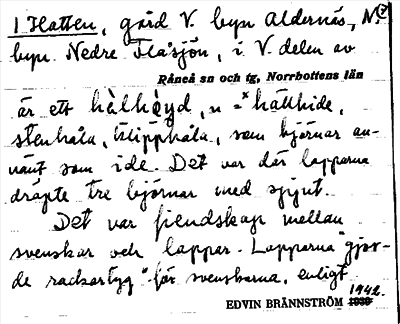 I Hatten, gård V. byn Aldernäs, N.
byn Nedre Flåsjön, i V. delen av
Råneå sn och tg, Norrbottens län
är ett hàlhàyd, n =x hällhide,
stenhåla, klipphåla, som björnar an-
vänt som ide. Det var där lapparna
dräpte tre björnar med spjut.
Det var fiendskap mellan
svenskar och lappar. Lapparna "gjor-
de rackartyg" för svenskarna, enligt
1942.
EDVIN BRÄNNSTRÖM 1939